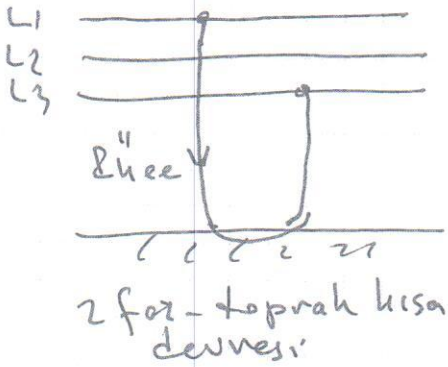 L1
L2
L3
2 faz-toprak kısa
devresi